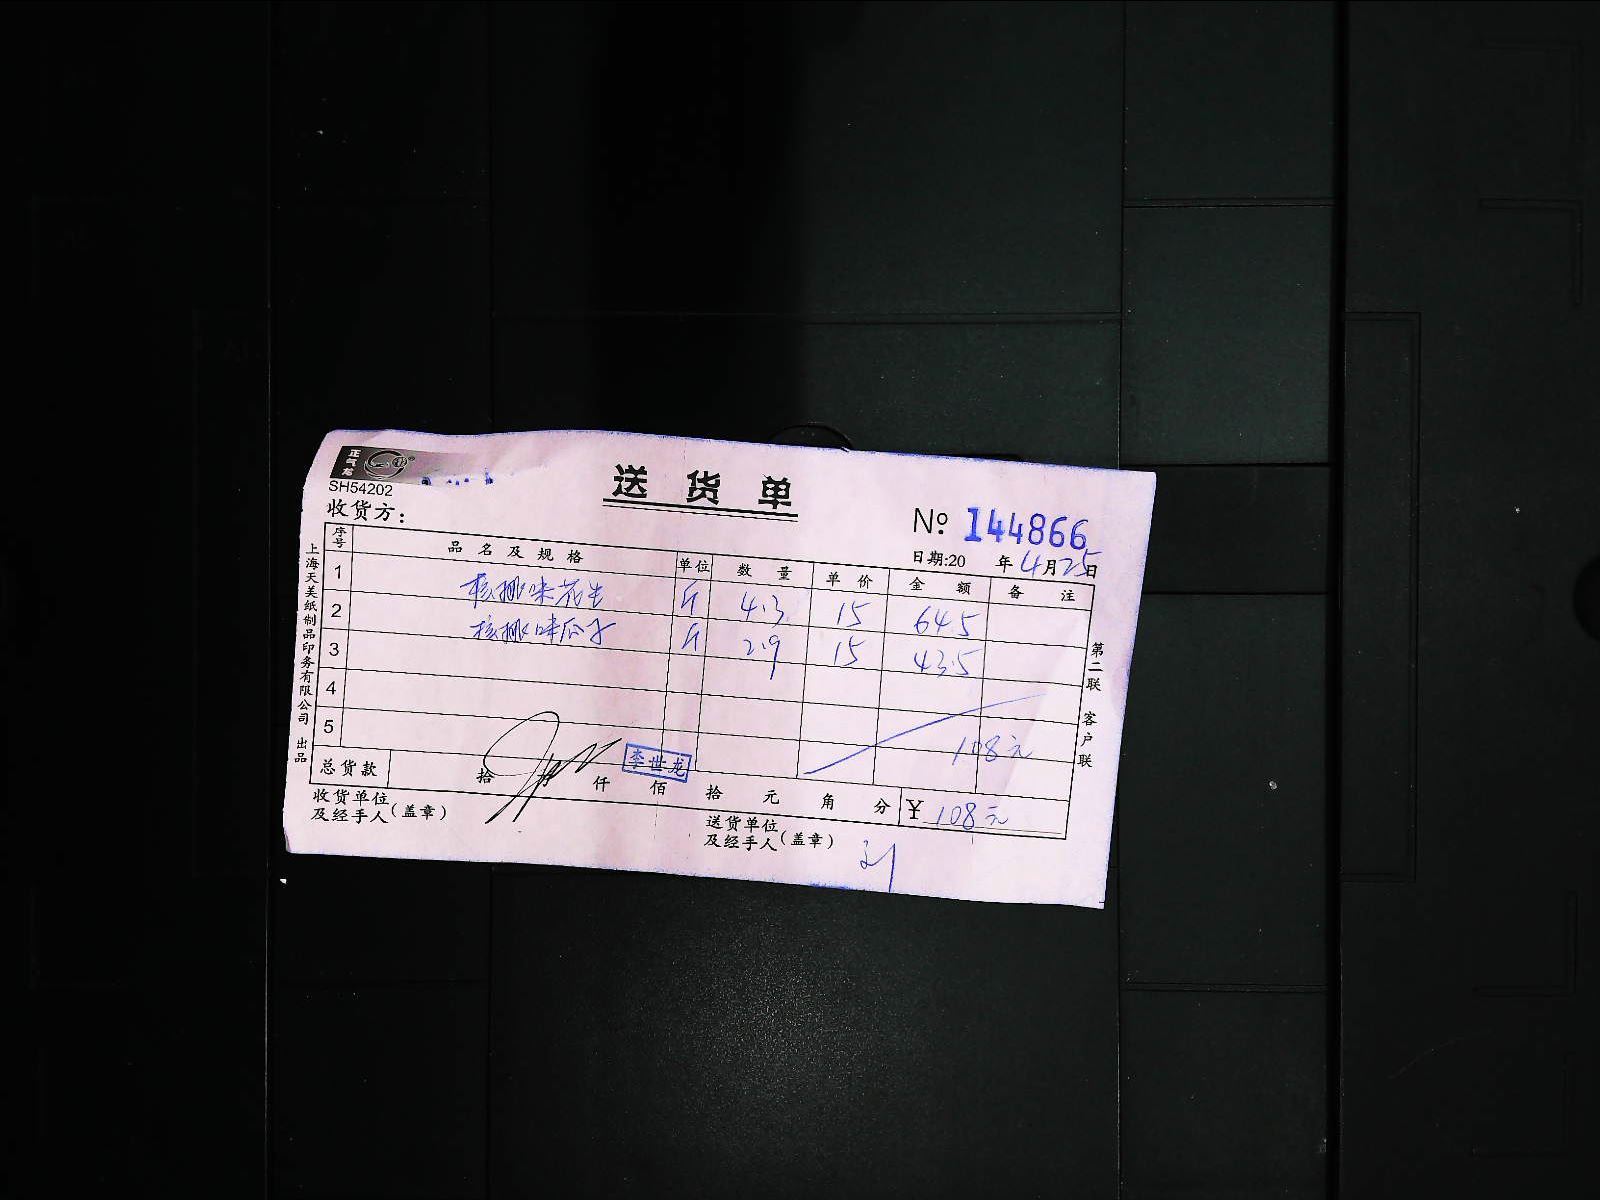 正气龙
SH54202
送货单
收货方：
№ 144866
日期:20 年4月25日
序号 品名及规格 单位 数量 单价 金额 备注
1 核桃味花生 斤 4.3 15 64.5
2 核桃味瓜子 斤 2.9 15 43.5
3
4
5 108元
总货款 拾 万 仟 佰 拾 元 角 分 ¥108元
李世龙
收货单位及经手人(盖章)
送货单位及经手人(盖章) 刘
上海天美纸制品印务有限公司 出品
第二联 客户联